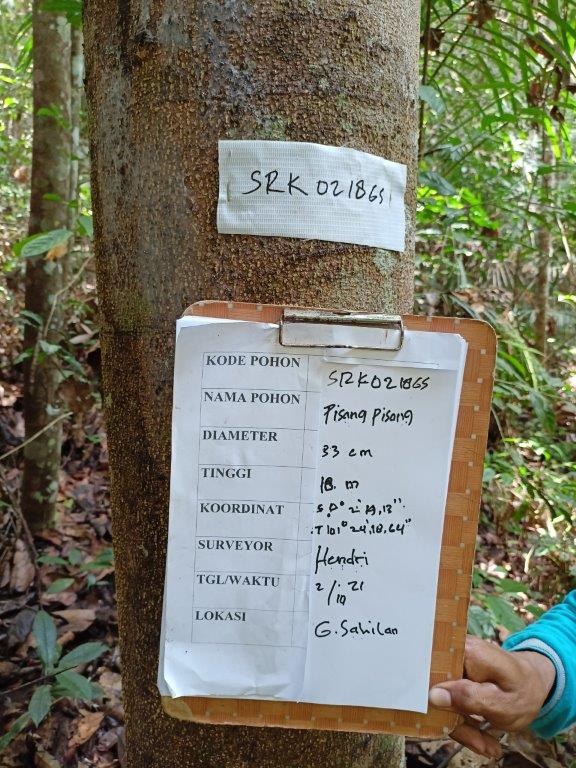 SRK 02186S
KODE POHON SRK02186S
NAMA POHON Pisang Pisang
DIAMETER 33 cm
TINGGI 18 m
KOORDINAT S 0° 2' 19,13"
T 101° 24' 18,64"
SURVEYOR Hendri
TGL/WAKTU 2/10 21
LOKASI G. Sahilan